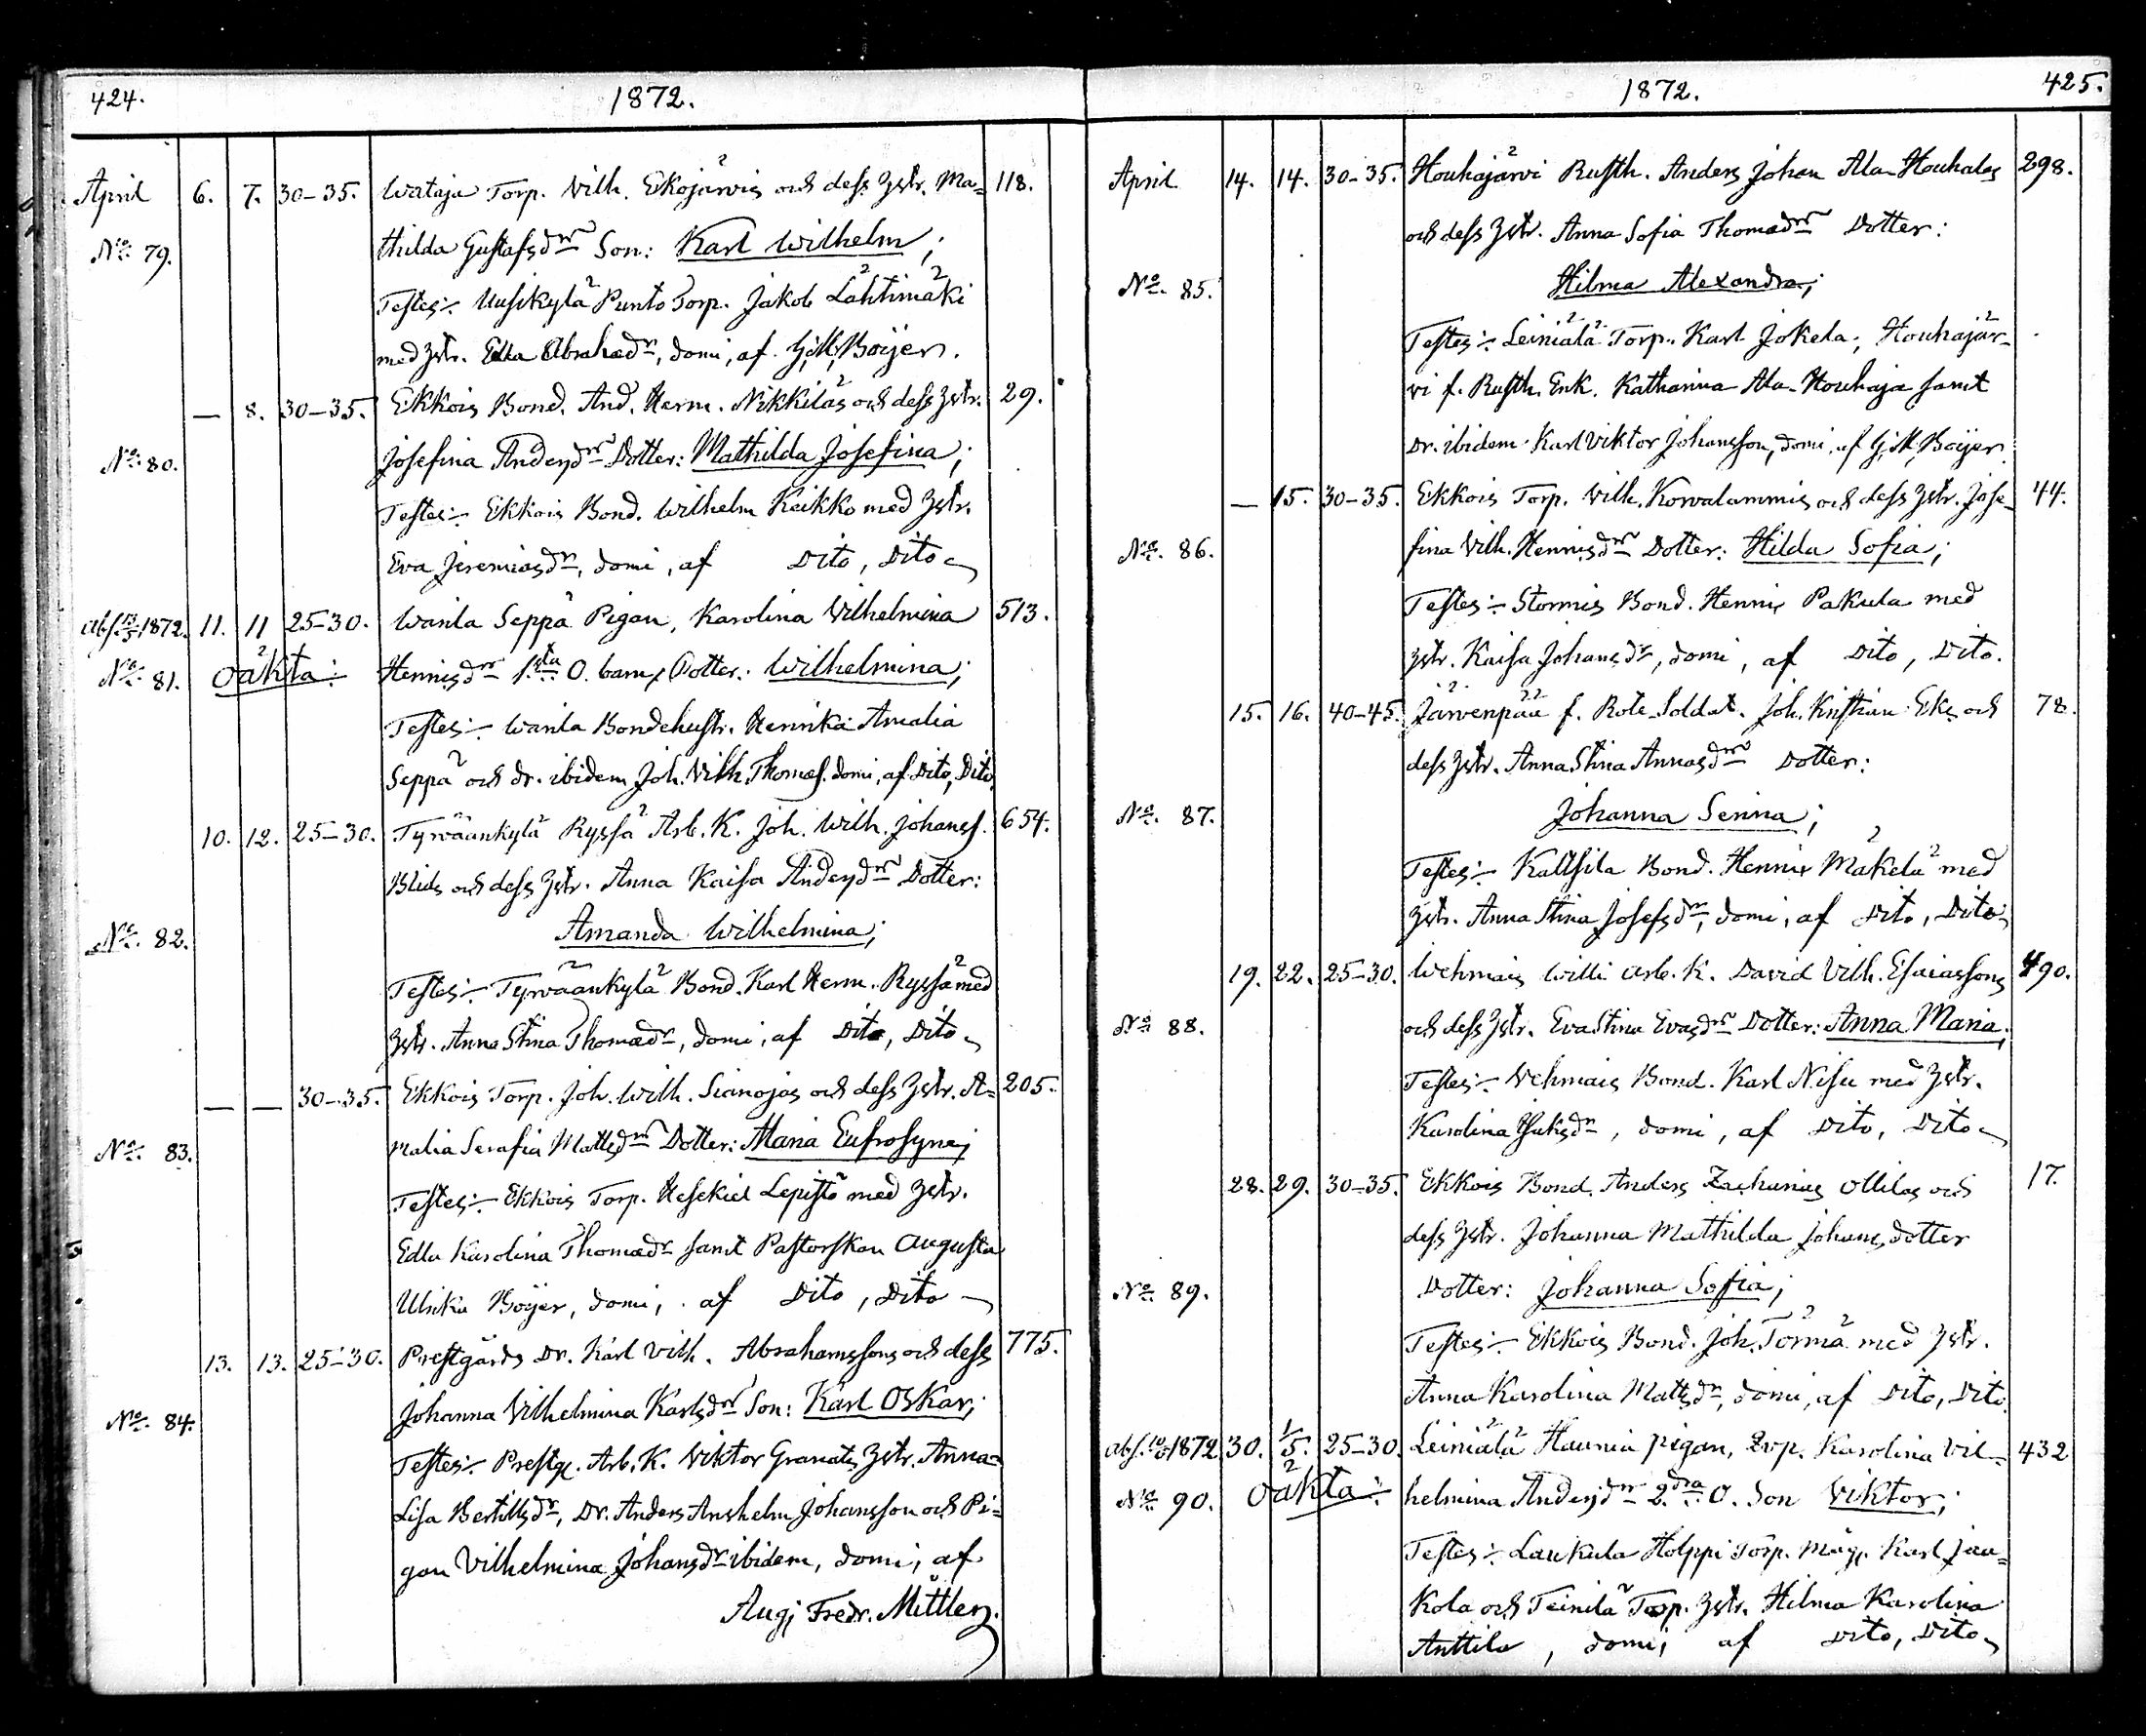 424. 1872.
April 6. 7. 30–35. Wataja Torp. Vilh. Ekojärvis och dess Hstr. Ma= 118.
No. 79. thilda Gustafsdr Son: Karl Wilhelm;
Testes:- Uusikylä Punto Torp. Jakob Lähtimäki
med Hstr. Edla Abrahadr, domi, af G, M, Boijer.
— 8. 30–35. Ekkois Bond. And. Herm. Nikkiläs och dess Hstr. 29.
No. 80. Josefina Andersdr Dotter: Mathilda Josefina;
Testes:- Ekkois Bond. Wilhelm Keikko med Hstr.
Eva Jeremiasdr, domi, af Dito, Dito
abs. 13/5 1872. 11. 11 25–30. Wanla Seppä Pigan, Karolina Vilhelmina 513.
No. 81. oäkta:- Hennigdr 1sta O. barn, Dotter: Wilhelmina;
Testes:- Wanla Bondehustr. Henrika Amalia
Seppä och dr. ibidem Joh. Vilh. Thomas. domi, af Dito, Dito
10. 12. 25–30. Tyrväänkylä Ryssä Arb. K. Joh. Wilh. Johanss. 654.
Blids och dess Hstr. Anna Kaisa Andersdr Dotter:
No. 82. Amanda Wilhelmina;
Testes:- Tyrväänkylä Bond. Karl Herm. Ryssä med
Hstr. Anna Stina Thomadr, domi, af Dito, Dito
— — 30–35. Ekkois Torp. Joh. Wilh. Sianojas och dess Hstr. A= 205.
No. 83. malia Serafia Mattsdr Dotter: Maria Eufrosyne;
Testes:- Ekkois Torp. Hesekiel Lepistö med Hstr.
Edla Karolina Thomadr samt Pastorskan Augusta
Ulrika Boijer, domi, af Dito, Dito
13. 13. 25–30. Prestgårds Dr. Karl Vilh. Abrahamssons och dess 775.
No. 84. Johanna Vilhelmina Karlsdr Son: Karl Oskar;
Testes:- Prestg. Arb. K. Viktor Granats Hstr. Anna=
Lisa Bertillsdr, Dr. Anders Anshelm Johansson och Pi=
gan Vilhelmina Johansdr ibidem, domi, af
Aug; Fredr. Mittler.
1872. 425.
April 14. 14. 30–35. Houhajärvi Rusth. Anders Johan Ala-Houhalas 298.
och dess Hstr. Anna Sofia Thomadr Dotter:
No. 85. Hilma Alexandra;
Testes:- Leiniälä Torp. Karl Jokela, Houhajär=
vi f. Rusth. Enk. Katharina Ala-Houhaja samt
Dr. ibidem Karl Viktor Johansson, domi, af G, M, Boijer.
— 15. 30–35. Ekkois Torp. Vilh. Kovalammis och dess Hstr. Jose= 44.
No. 86. fina Vilh. Hennigdr Dotter: Hilda Sofia;
Testes:- Stormis Bond. Hennig Pakula med
Hstr. Kaisa Johansdr, domi, af Dito, Dito.
15. 16. 40–45. Järvenpää f. Rote-Soldat. Joh. Kristian Eks och 78.
dess Hstr. Anna Stina Annasdr Dotter:
No. 87. Johanna Senina;
Testes:- Kaltsila Bond. Hennig Mäkelä med
Hstr. Anna Stina Josefsdr, domi, af Dito, Dito
19. 22. 25–30. Wehmais Willi Arb. K. David Vilh. Esaiassons 490.
No. 88. och dess Hstr. Eva Stina Evasdr Dotter: Anna Maria;
Testes:- Vehmais Bond. Karl Nisu med Hstr.
Karolina Isaksdr, domi, af Dito, Dito
28. 29. 30–35. Ekkois Bond. Anders Zacharias Ollilas och 17.
dess Hstr. Johanna Mathilda Johansdotter
No. 89. Dotter: Johanna Sofia;
Testes:- Ekkois Bond. Joh. Törmä med Hstr.
Anna Karolina Mattsdr, domi, af Dito, Dito.
abs. 1872 30. 1/5. 25–30. Leiniälä Haunia pigan, Karolina Vil= 432
No. 90. oäkta:- helmina Andersdr 2dra O. Son Viktor;
Testes:- Laukula Holppi Torp. Måg. Karl Jau=
kola och Teinilä Torp. Hstr. Hilma Karolina
Anttila, domi, af Dito, Dito